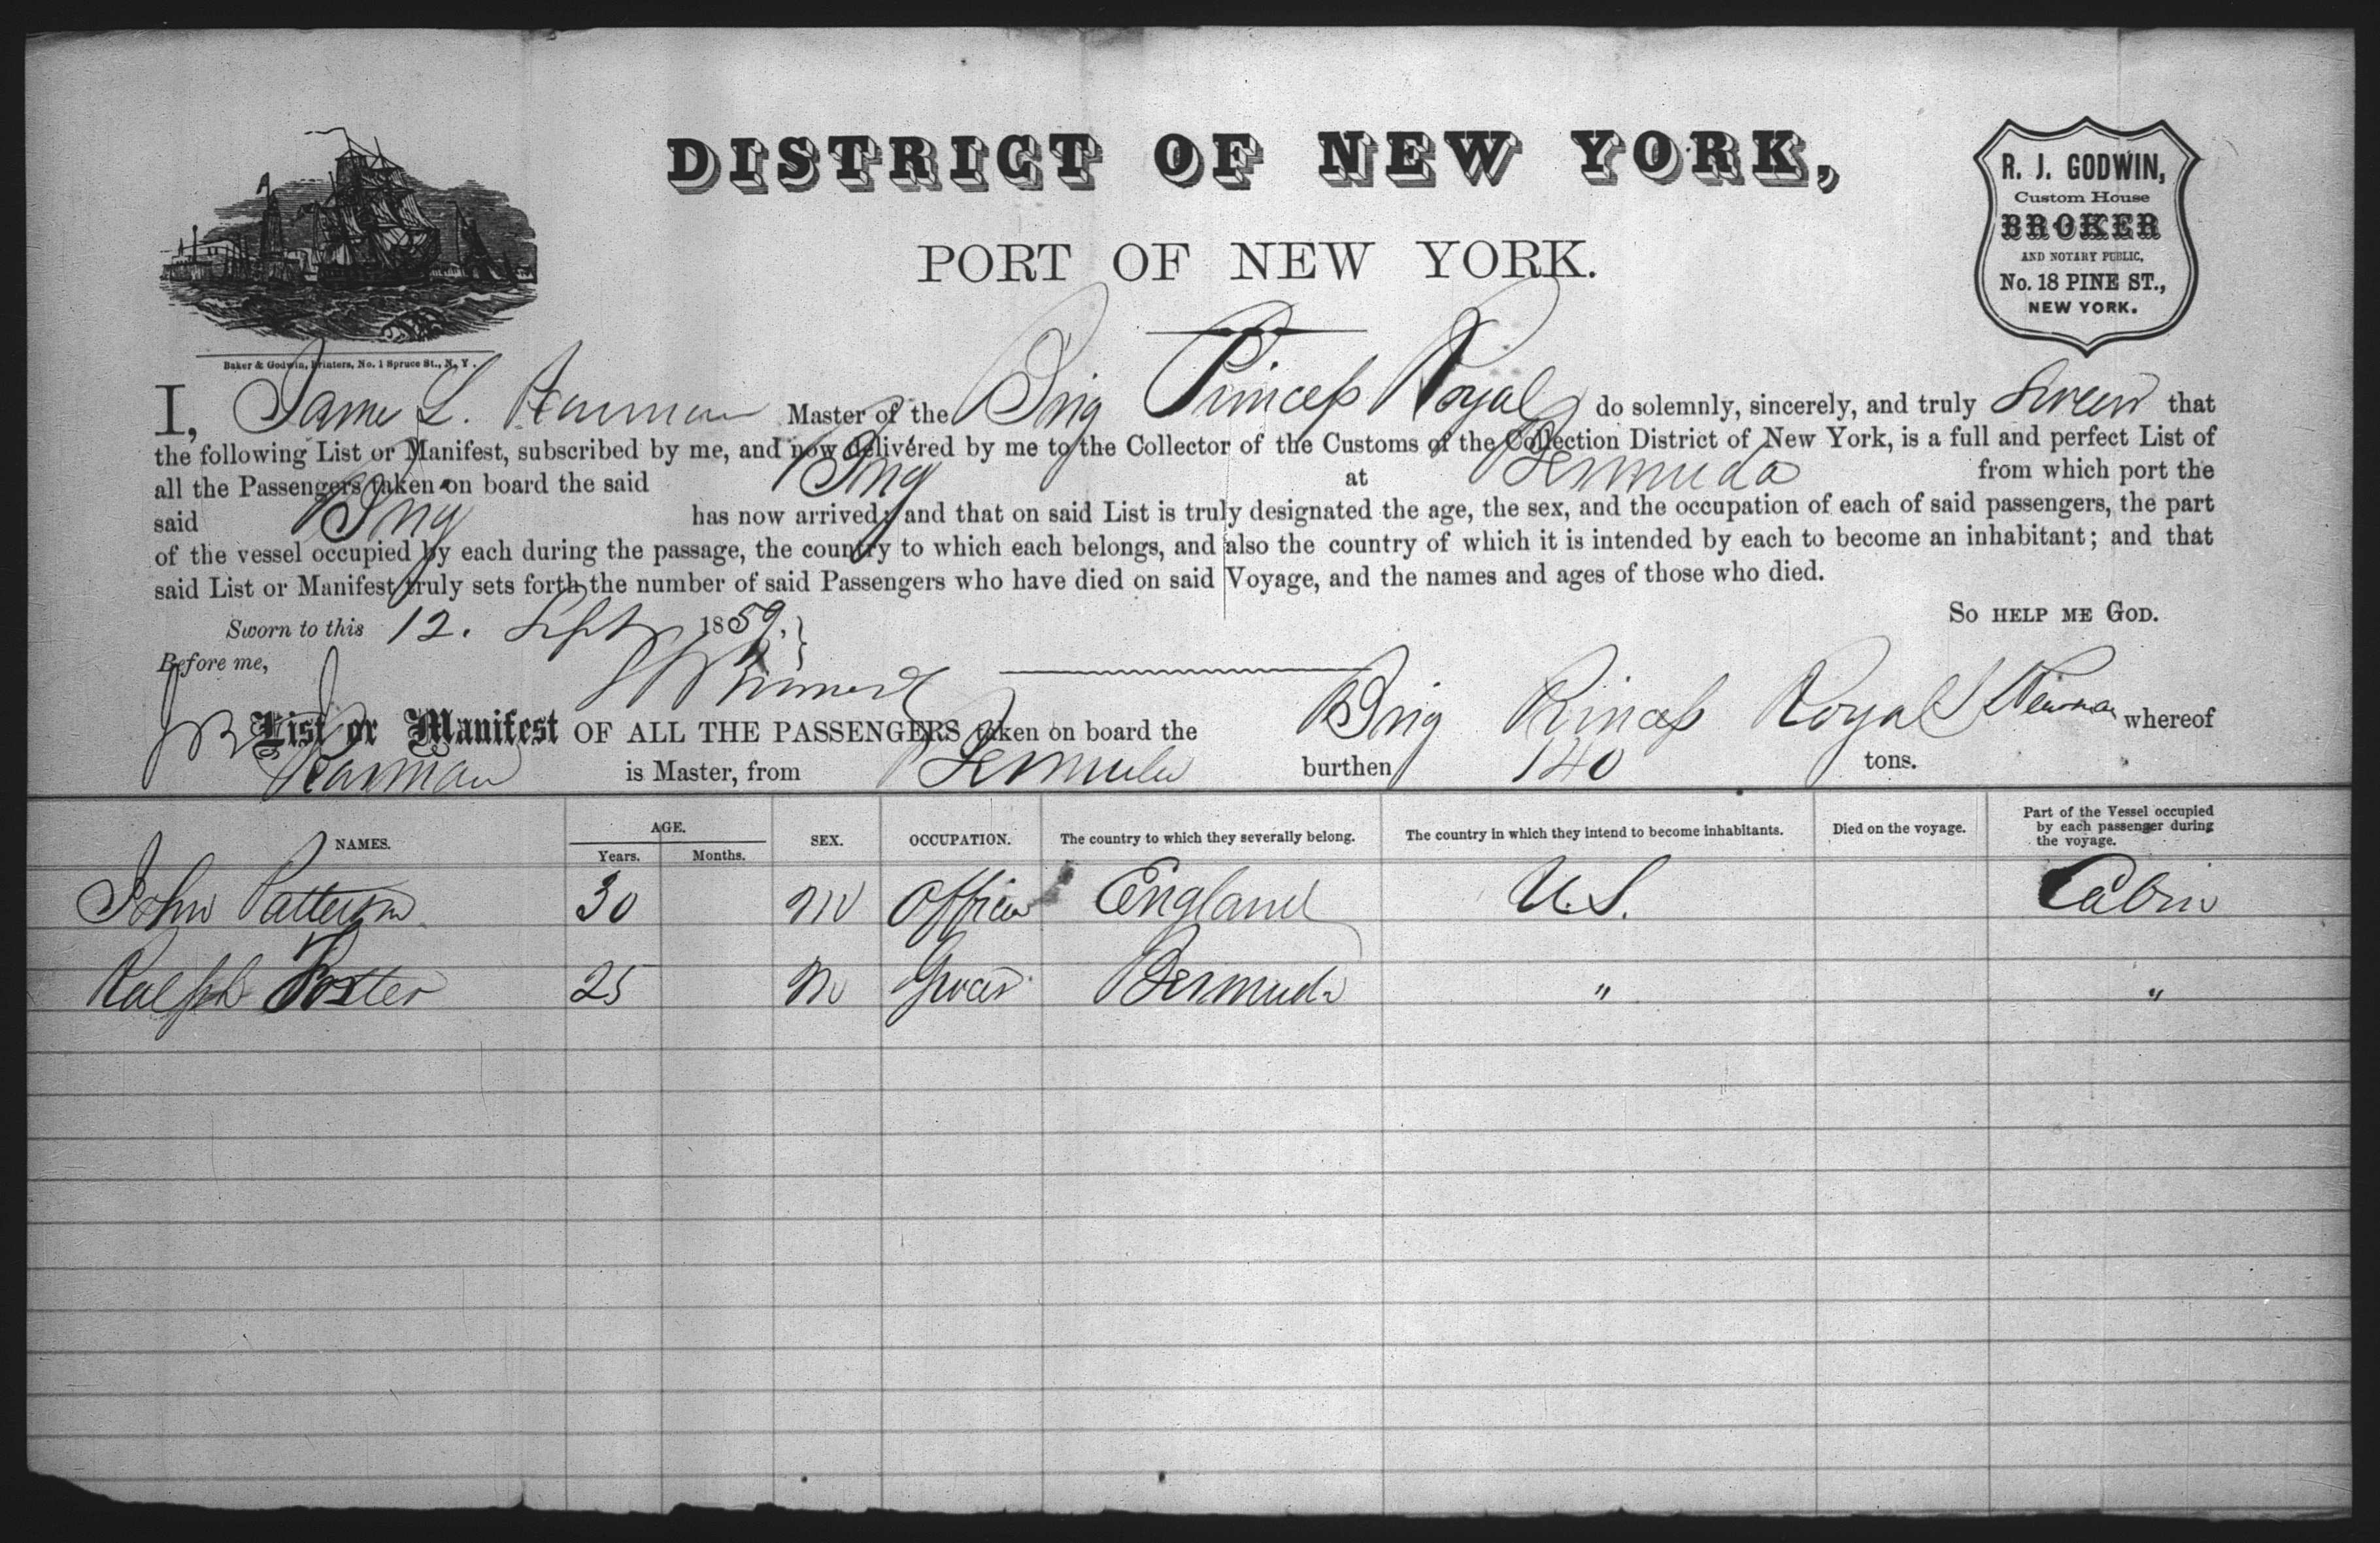 DISTRICT OF NEW YORK,
PORT OF NEW YORK.
R. J. GODWIN,
Custom House
BROKER
AND NOTARY PUBLIC,
No. 18 PINE ST.,
NEW YORK.
Baker & Godwin, Printers, No. 1 Spruce St., N. Y.
I, James L. Master of the Brig Princess Royal do solemnly, sincerely, and truly swear that
the following List or Manifest, subscribed by me, and now delivered by me to the Collector of the Customs of the Collection District of New York, is a full and perfect List of
all the Passengers taken on board the said Brig at Bermuda from which port the
said Brig has now arrived; and that on said List is truly designated the age, the sex, and the occupation of each of said passengers, the part
of the vessel occupied by each during the passage, the country to which each belongs, and also the country of which it is intended by each to become an inhabitant; and that
said List or Manifest truly sets forth the number of said Passengers who have died on said Voyage, and the names and ages of those who died.
So HELP ME GOD.
Sworn to this 12. Sept 1859.
Before me,
List or Manifest OF ALL THE PASSENGERS taken on board the Brig Princess Royal whereof
is Master, from Bermuda burthen 140 tons.
NAMES. AGE. Years. Months. SEX. OCCUPATION. The country to which they severally belong. The country in which they intend to become inhabitants. Died on the voyage. Part of the Vessel occupied by each passenger during the voyage.
John Patterson 30 M Officer England U.S. Cabin
Ralph Foster 25 M Bermuda " "